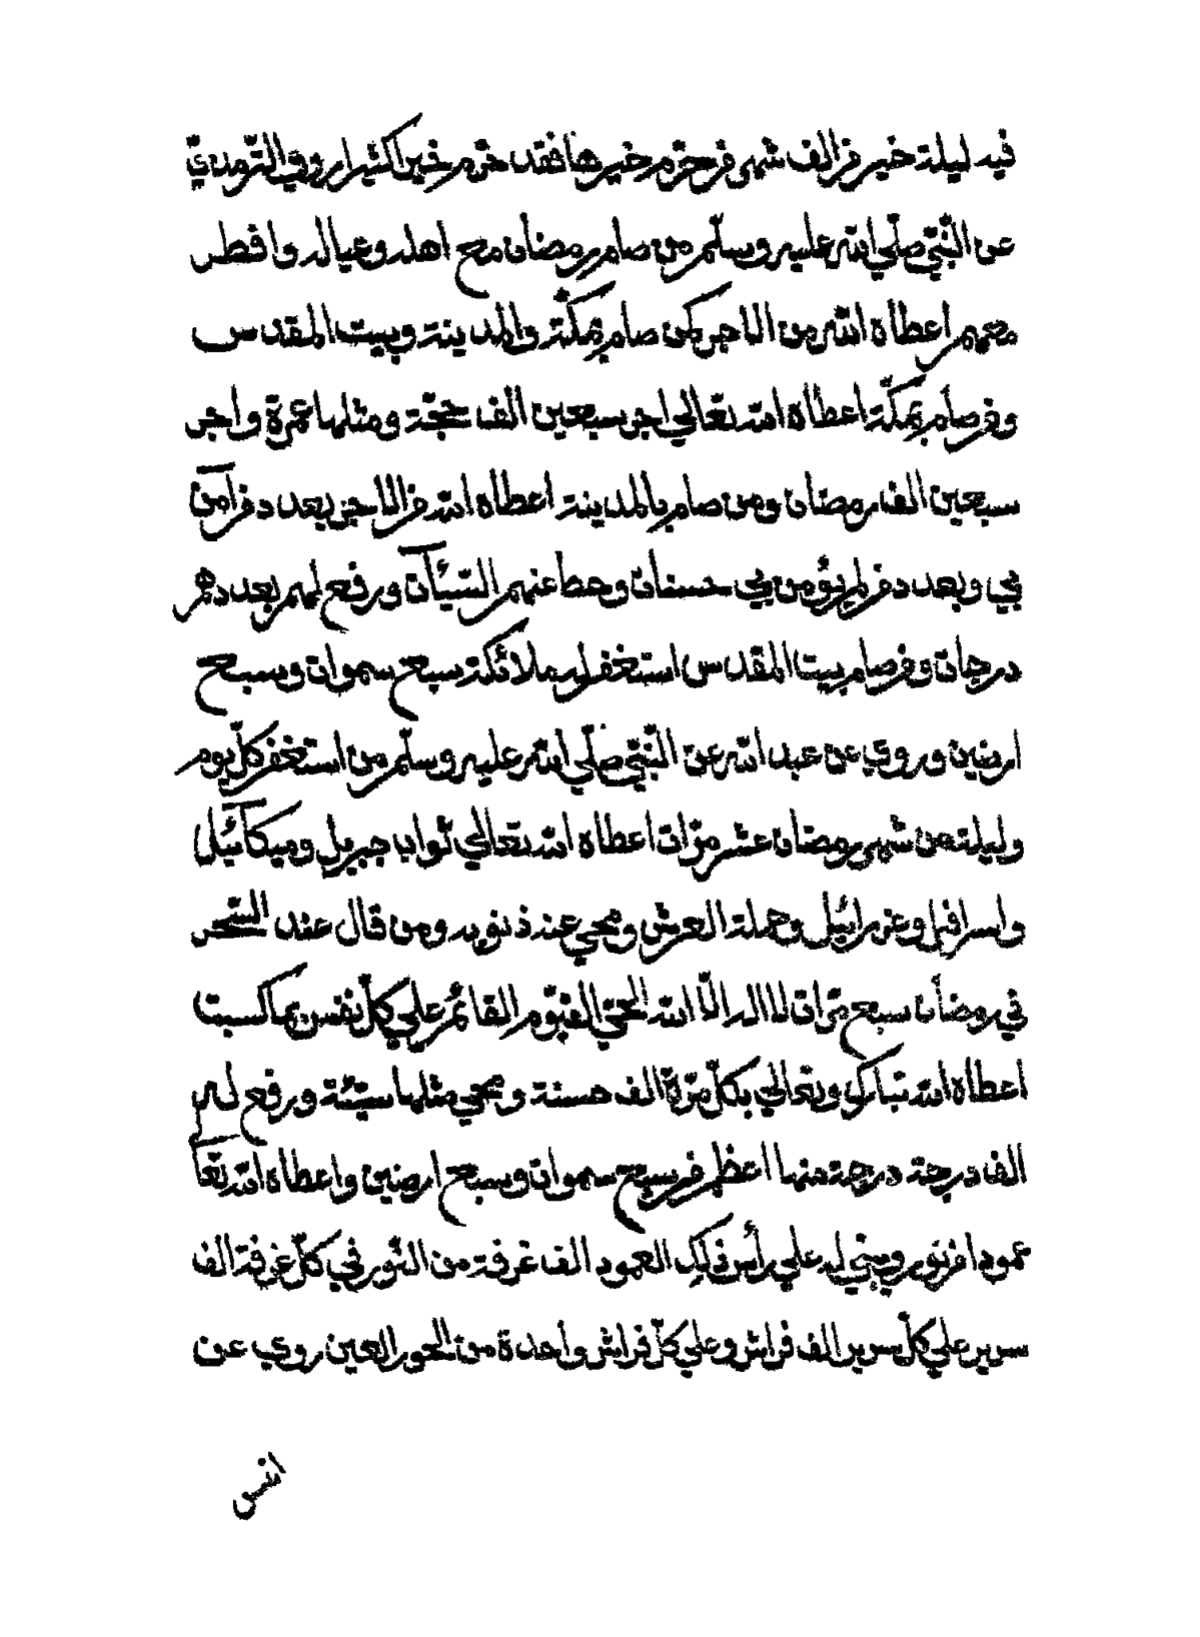 فيه ليلة خير من الف شهر من حرّم خيرها فقد حرّم خيرا كثيرا روي الترمذيّ
عن النّبيّ صلّي الله عليه وسلّم من صام رمضان مع اهله وعياله وافطر
معهم اعطاه الله من الاجر كمن صام بمكّة والمدينة وبيت المقدس
ومن صام بمكّة اعطاه الله تعالي اجر سبعين الف حجّة ومثلها عمرة واجر
سبعين الف رمضان ومن صام بالمدينة اعطاه الله من الاجر بعدد من آمن
بي وبعدد من لم يؤمن بي حسنات وحط عنهم السّيّآت ورفع لهم بعددهم
درجات ومن صام ببيت المقدس استغفر له ملائكة سبع سموات وسبع
ارضين وروي عن عبد الله عن النّبيّ صلّي الله عليه وسلّم من استغفر كلّ يوم
وليلة من شهر رمضان عشر مرّات اعطاه الله تعالي ثواب جبريل وميكآئيل
واسرافيل وعزرائيل وحملة العرش ومحي عنه ذنوبه ومن قال عند السّحر
في رمضان سبع مرّات لا اله الّا الله الحيّ القيّوم القائم علي كلّ نفس بما كسبت
اعطاه الله تبارك وتعالي بكلّ مرّة الف حسنة ومحي مثلها سيّئة ورفع له
الف درجة درجة منها اعظم من سبع سموات وسبع ارضين واعطاه الله تعا
عمودا من نور وبني له علي رأس ذلك العمود الف غرفة من النّور في كلّ غرفة الف
سرير علي كلّ سرير الف فراش وعلي كلّ فراش واحدة من الحور العين روي عن
انس